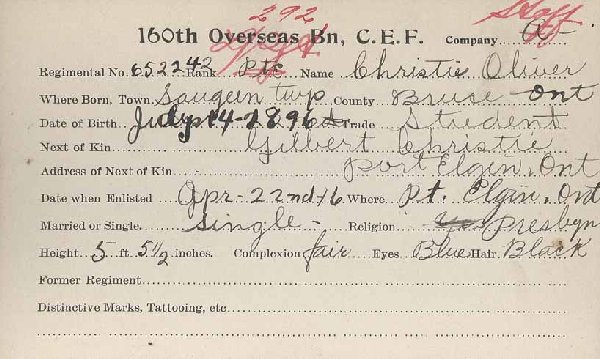 292 Staff
160th Overseas Bn, C.E.F. Company A
Regimental No. 652242 Rank Pte Name Christie Oliver
Where Born, Town Saugeen twp County Bruce Ont
Date of Birth July 14-1896 Trade Student
Next of Kin Gilbert Christie
Address of Next of Kin port Elgin, Ont
Date when Enlisted Apr-22nd/16 Where Pt. Elgin, Ont
Married or Single. Single- Religion Presbyn
Height 5 ft. 5 1/2 inches. Complexion fair Eyes Blue Hair Black
Former Regiment
Distinctive Marks, Tattooing, etc